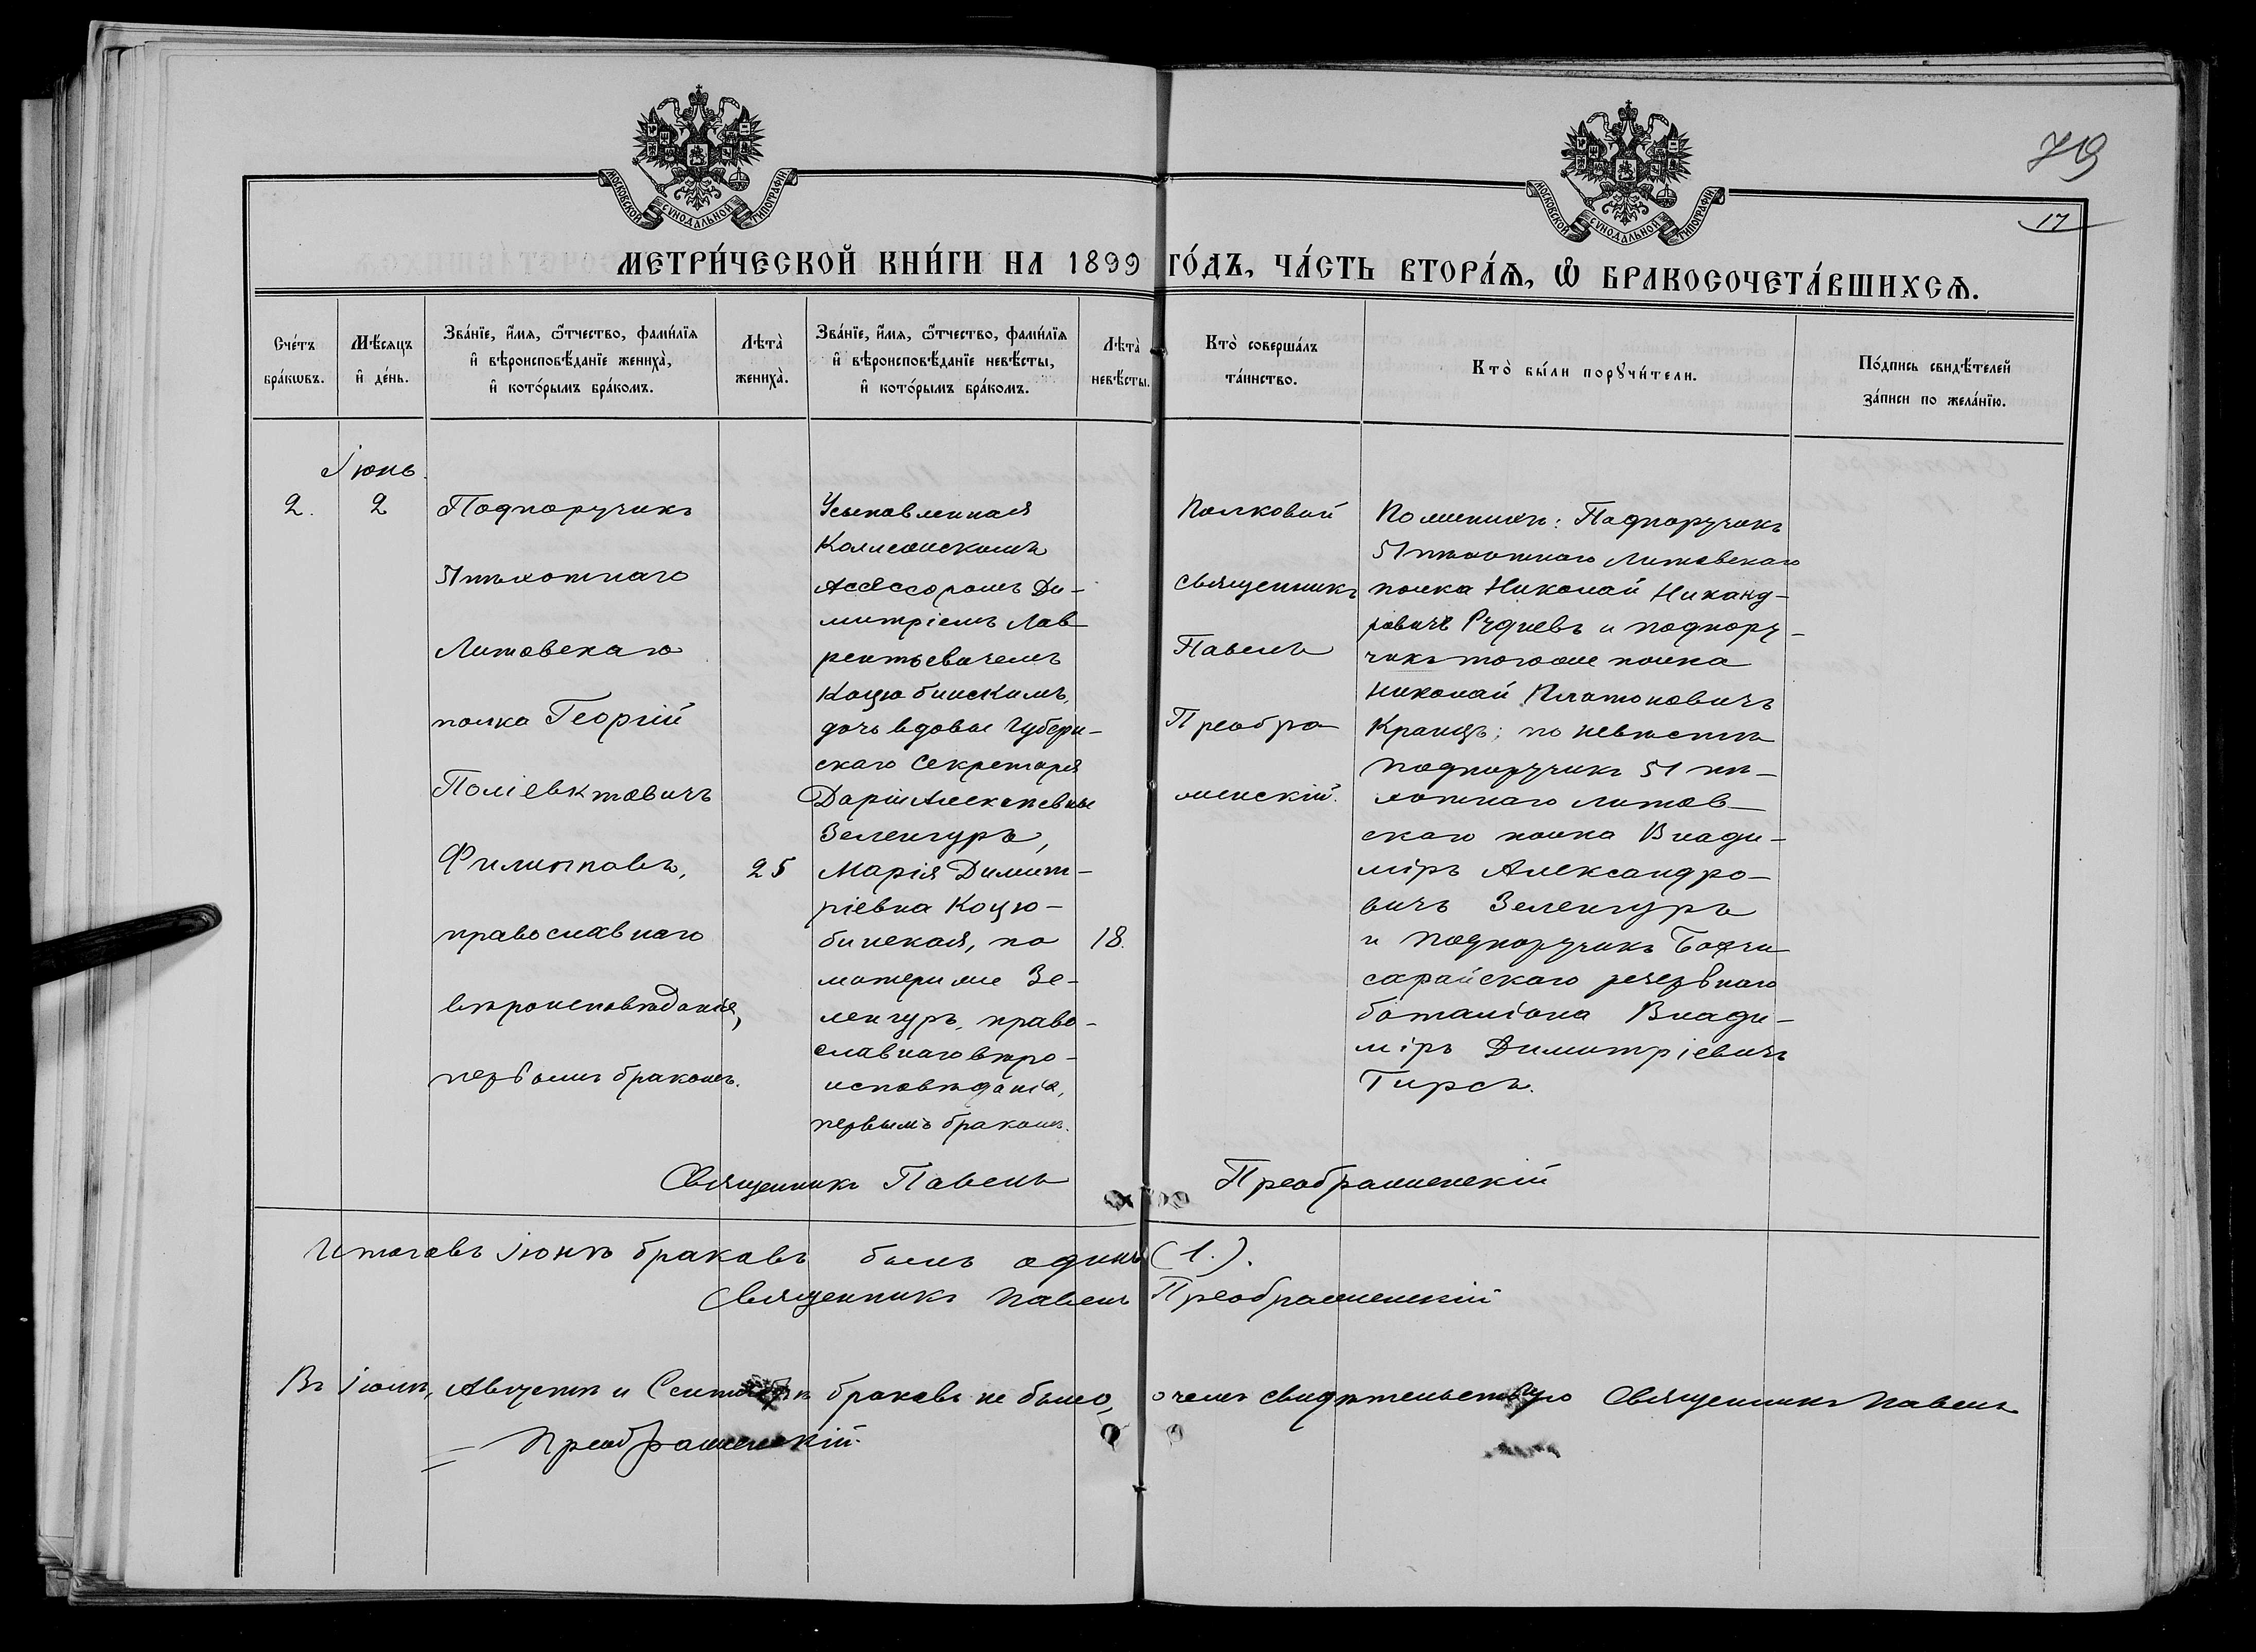 МОСКОВСКОЙ СѴНОДАЛЬНОЙ ТИПОГРАФІИ
МОСКОВСКОЙ СѴНОДАЛЬНОЙ ТИПОГРАФІИ
79
17
МЕТРИ́ЧЕСКОЙ КНИ́ГИ НА 1899 ГО́ДЪ, ЧА́СТЬ ВТОРА́Ѧ, Ѡ҆ БРАКОСОЧЕТА́ВШИХСѦ.
Сче́тъ
бра́кѡвъ.
Мѣ́сѧцъ
и҆ де́нь.
Зва́нїе, и҆́мѧ, ѻ҆́тчество, фами́лїѧ
и҆ вѣроисповѣ́данїе жениха̀,
и҆ кото́рымъ бра́комъ.
Лѣта̀
жениха̀.
Зва́нїе, и҆́мѧ, ѻ҆́тчество, фами́лїѧ
и҆ вѣроисповѣ́данїе невѣ́сты,
и҆ кото́рымъ бра́комъ.
Лѣта̀
невѣ́сты.
Кто̀ соверша́лъ
та́инство.
Кто̀ бы́ли порꙋчи́тели.
По́дпись свидѣ́телей
за́писи по жела́нїю.
Іюнь.
2.
2
Подпоручикъ
51 пѣхотнаго
Литовскаго
полка Георгій
Поліевктовичъ
Филипповъ,
православнаго
вѣроисповѣданія,
первымъ бракомъ.
25
Усыновленная
Коллежскимъ
Ассессоромъ Ди-
митріемъ Лав
рентьевичемъ
Коцюбинскимъ,
дочь вдовы Губерн-
скаго Секретаря
Даріи Алексѣевны
Зеленгуръ,
Марія Димит-
ріевна Коцю-
бинская, по
матери же Зе-
ленгуръ, право-
славнаго вѣро-
исповѣданія,
первымъ бракомъ.
18.
Полковой
священникъ
Павелъ
Преобра
женскій.
По женихѣ: Подпоручикъ
51 пѣхотнаго Литовскаго
полка НиколайНиканд-
ровичъ Рудневъ и подпору-
чикъ того же полка
Николай Платоновичъ
Кранцъ; по невѣстѣ
подпоручикъ 51 пѣ-
хотнаго Литов-
скаго полка Влади-
міръ Александро-
вичъ Зеленгуръ
и подпоручикъ Бахчи
сарайскаго резервнаго
баталіона Влади-
міръ Димитріевичъ
Тирсъ.
Священникъ Павелъ Преображенскій
Итого въ Іюнѣ браковъ былъ одинъ (1.).
Священникъ Павелъ Преображенскій
Въ Іюлѣ, Августѣ и Сентябрѣ браковъ не было, о чемъ свидѣтельствую Священникъ Павелъ
Преображенскій.